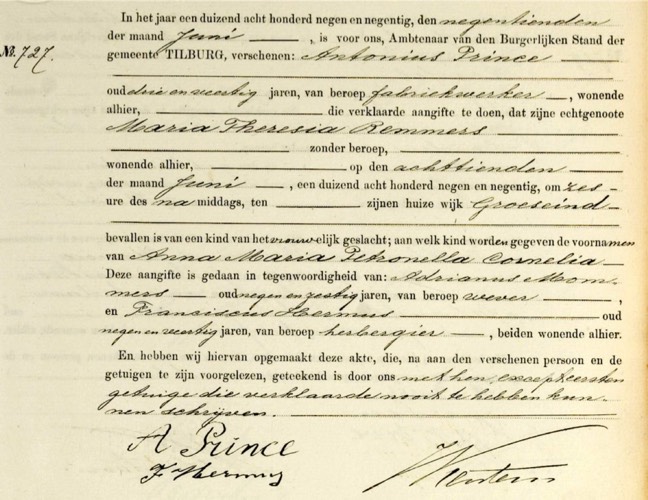 In het jaar een duizend acht honderd negen en negentig, den negentienden
der maand Juni, is voor ons, Ambtenaar van den Burgerlijken Stand der
No. 727.
gemeente TILBURG, verschenen: Antonius Prince
oud drie en veertig jaren, van beroep fabriekwerker, wonende
alhier, die verklaarde aangifte te doen, dat zijne echtgenoote
Maria Theresia Remmers
zonder beroep,
wonende alhier, op den achttienden
der maand Juni, een duizend acht honderd negen en negentig, om zes
ure des na middags, ten zijnen huize wijk Groeseind
bevallen is van een kind van het vrouwelijk geslacht; aan welk kind worden gegeven de voornamen
van Anna Maria Petronella Cornelia
Deze aangifte is gedaan in tegenwoordigheid van: Adrianus Mom-
mers oud negen en zestig jaren, van beroep wever,
en Franciscus Hermus oud
negen en veertig jaren, van beroep herbergier, beiden wonende alhier.
En hebben wij hiervan opgemaakt deze akte, die, na aan den verschenen persoon en de
getuigen te zijn voorgelezen, geteekend is door ons met hen, except eersten
getuige die verklaarde nooit te hebben kun-
nen schrijven.
A Prince
F Hermus